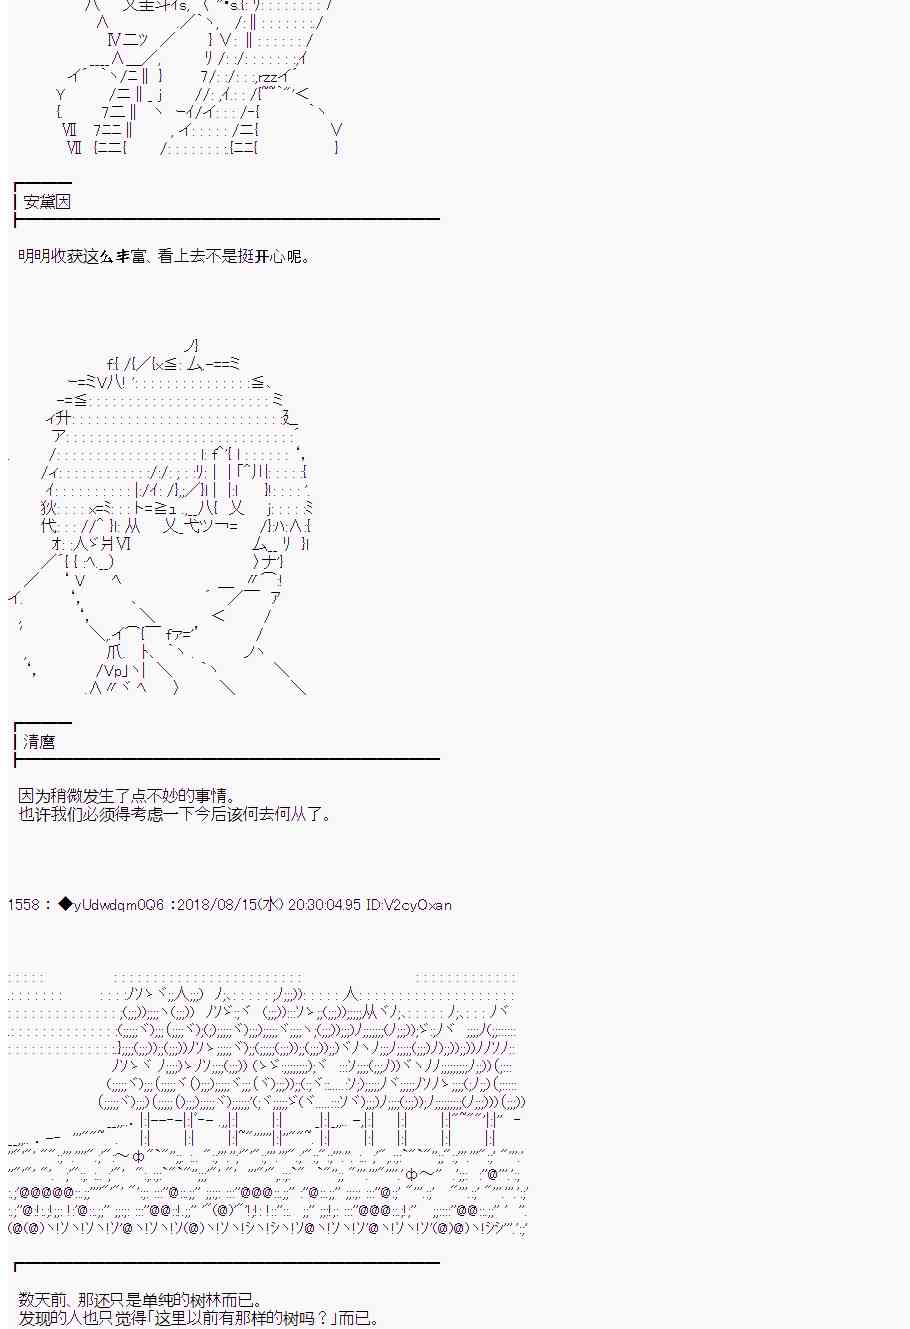 安黛因
明明收获这么丰富、看上去不是挺开心呢。
清麿
因为稍微发生了点不妙的事情。
也许我们必须得考虑一下今后该何去何从了。
1558 : ◆yUdwdqm0Q6 :2018/08/15(水) 20:30:04.95 ID:V2cyOxan
数天前、那还只是单纯的树林而已。
发现的人也只觉得「这里以前有那样的树吗？」而已。